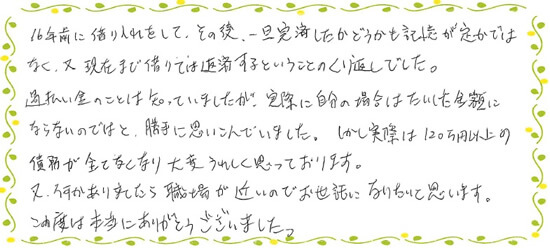 16年前に借り入れをして、その後、一旦完済したかどうかも記憶が定かでは
なく、又現在まで借りては返済するということのくり返しでした。
過払い金のことは知っていましたが、実際に自分の場合はたいした金額に
ならないのではと、勝手に思いこんでいました。しかし実際は120万円以上の
債務が全てなくなり大変うれしく思っております。
又、何かありましたら職場が近いのでお世話になりたいと思います。
この度は本当にありがとうございました。